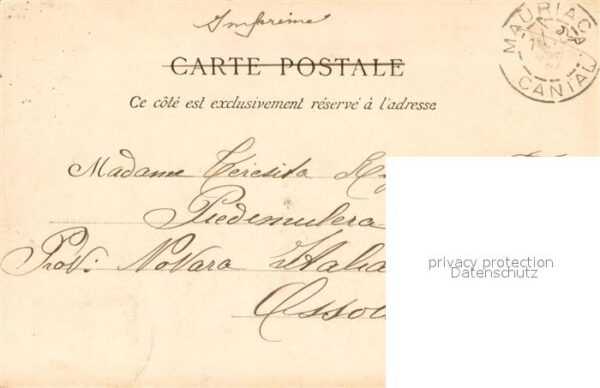 Imprimé
MAURIAC
CANTAL
CARTE POSTALE
Ce côté est exclusivement réservé à l'adresse
Madame Teresita
Piedimulera
Prov: Novara Italia
privacy protection
Datenschutz